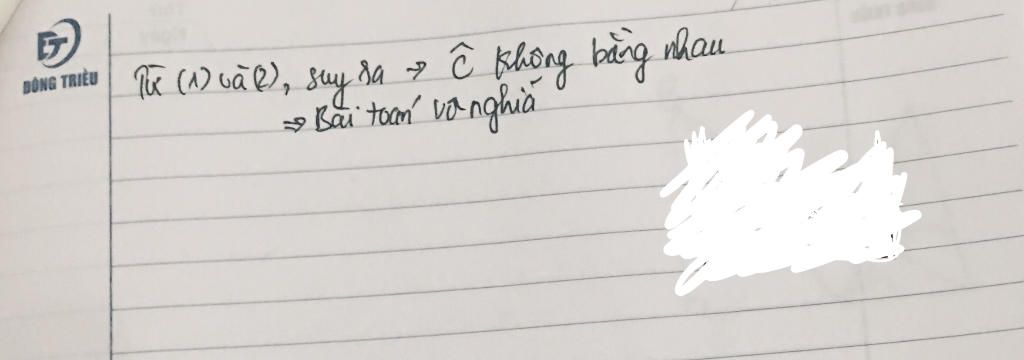 ĐÔNG TRIỀU
Từ (1) và (2), suy ra → Ĉ không bằng nhau
⇒ Bài toán vô nghiã